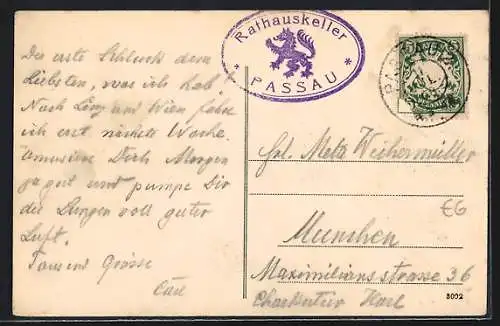 Der erste Schluck dem
Liebsten, was ich hab!
Nach Linz und Wien fahre
ich erst nächste Woche.
Amusiere Dich Morgen
ja gut und pumpe Dir
die Lungen voll guter
Luft.
Tausend Grüsse
Carl
Rathauskeller
* PASSAU *
PASSAU
5
Frl. Weihermüller
München
Maximiliansstrasse 36
Karl
€6
3002